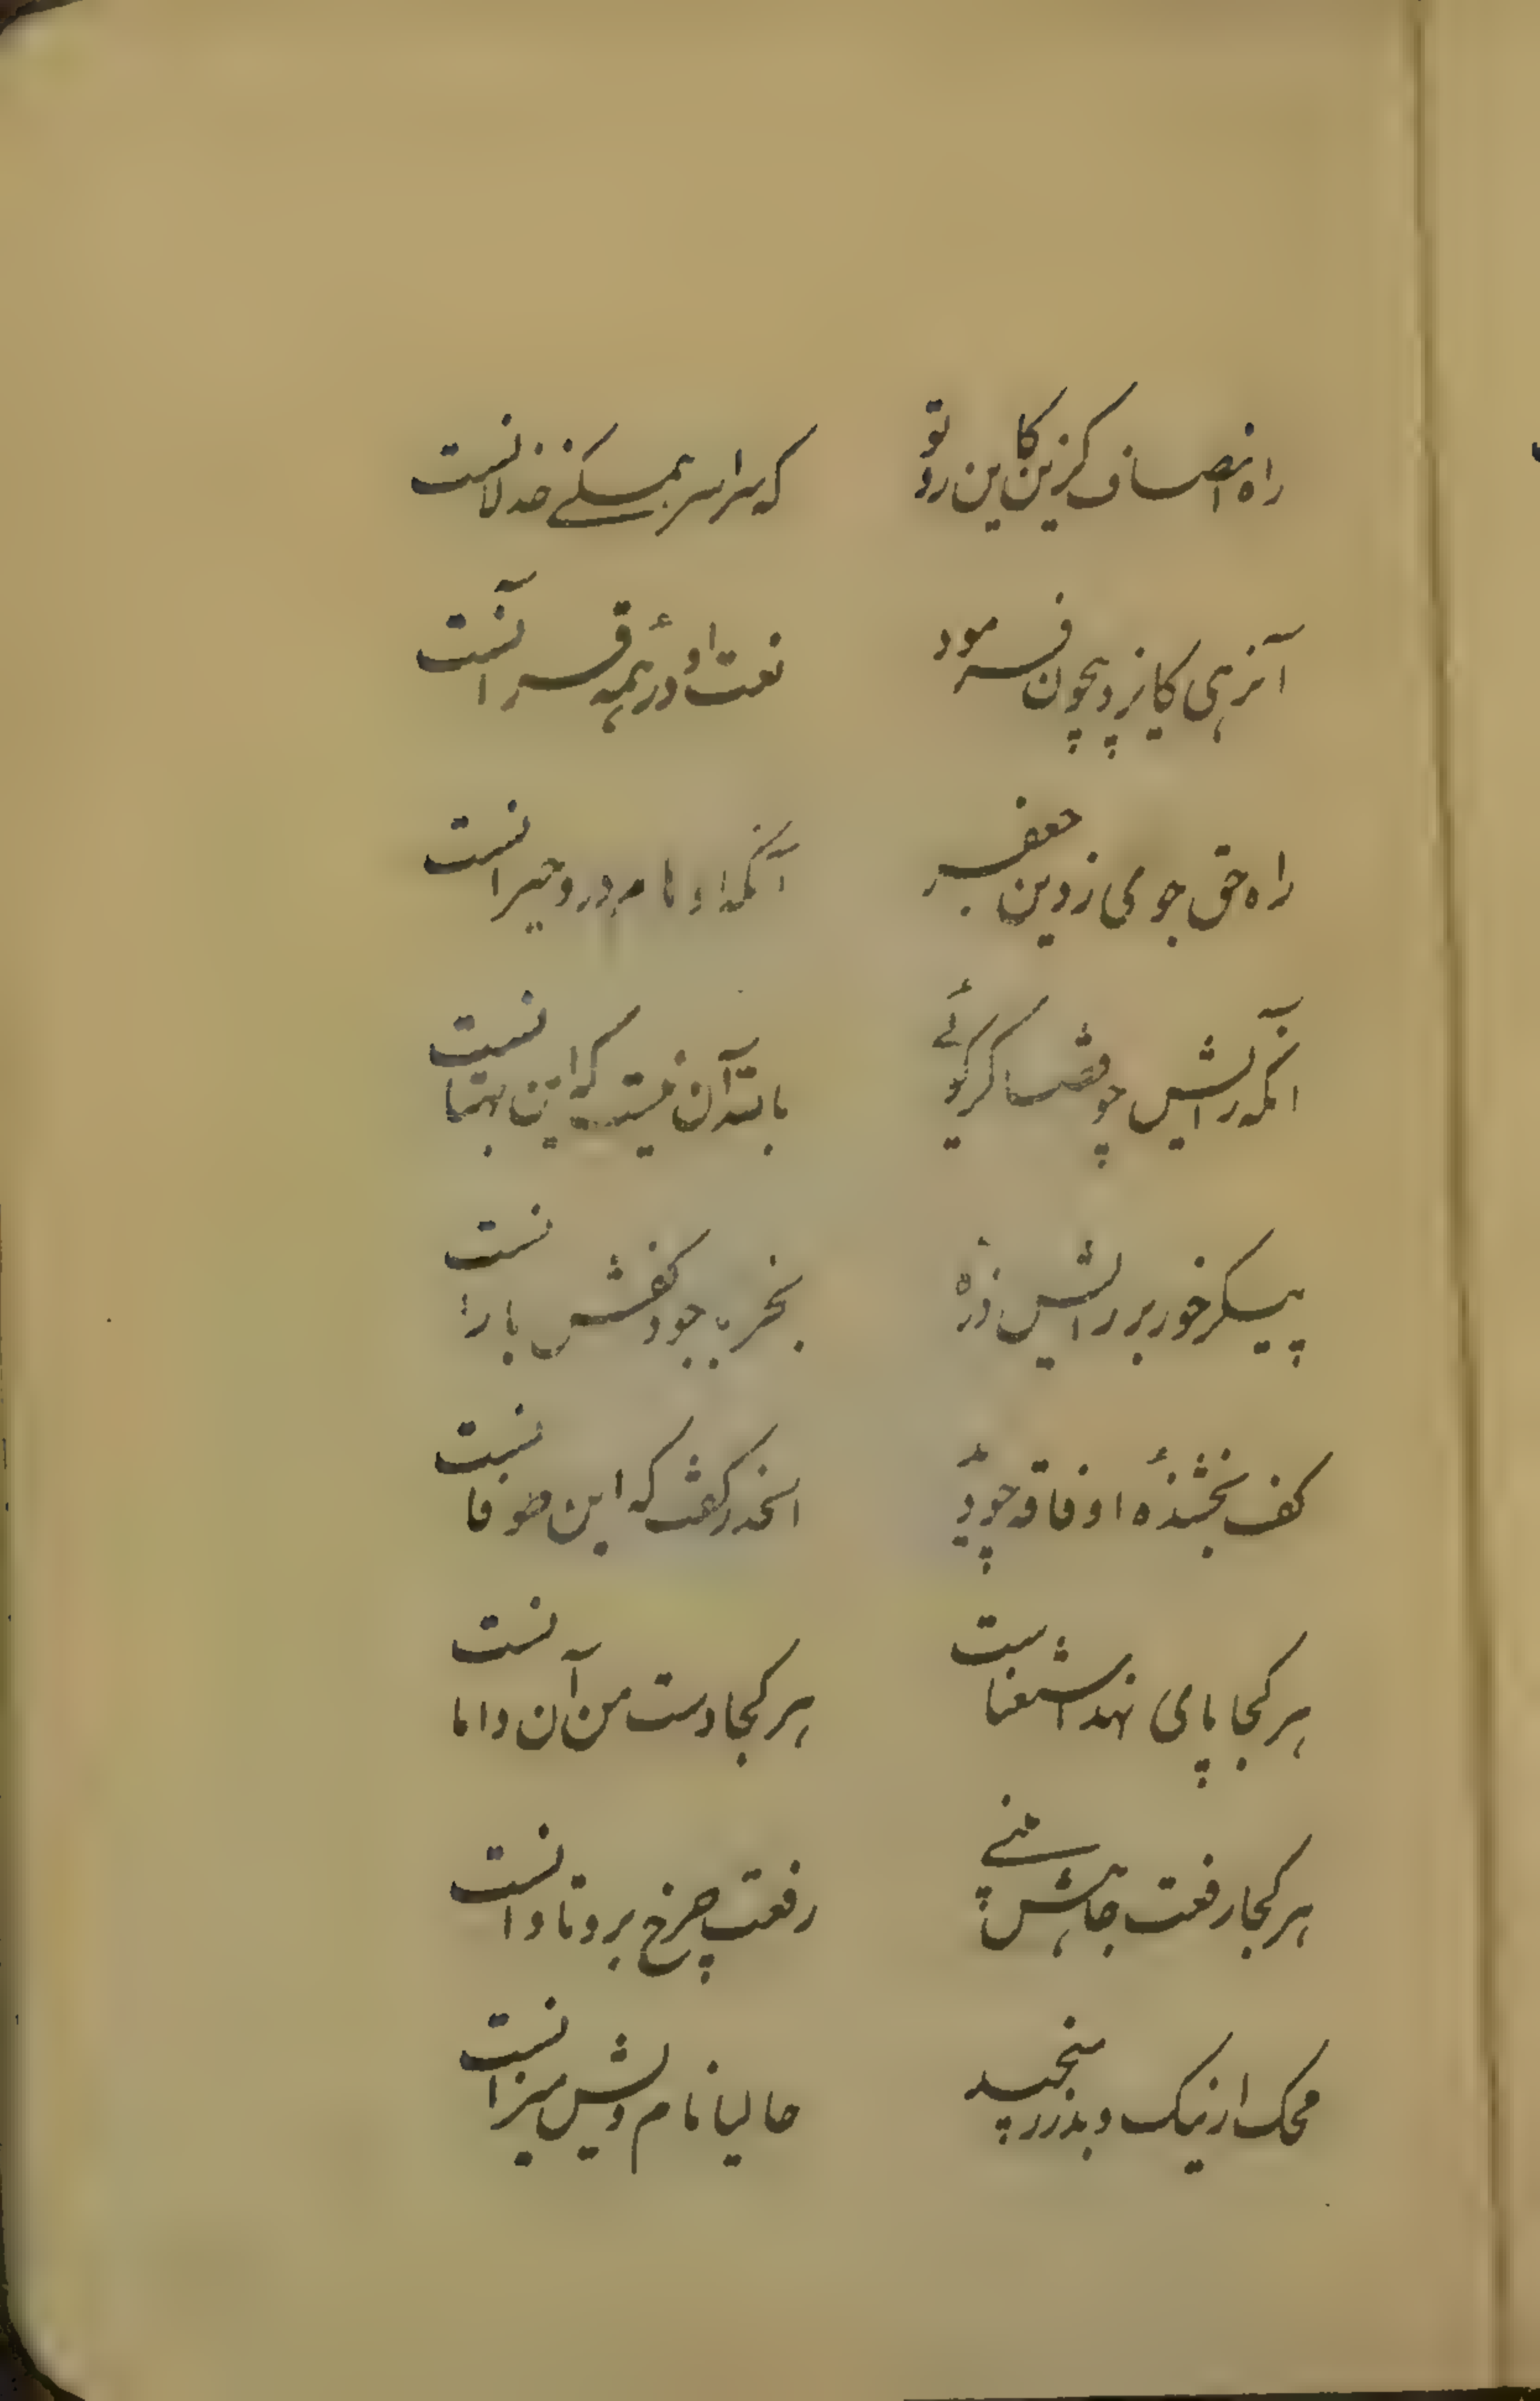 راه انصاف گزین کاین ره تو
که سراسر همگی خذلانست
آنرهی کایزد بیچون فرمود
نعت او در همه قرآنست
راه حق جوی ز دین جعفر
آنکه اوهام درو حیرانست
آنکه رایش چو قضا گر گوئی
باشد آن نیست که این بهتانست
پیکر خور بر رایش ذره
بخر بجود کفش بارانست
کف بخشنده او فاقه چو دید
الحذر گفت که این طوفانست
هر کجا پای نهد استغناست
هر کجا دست من آن دامانست
هر کجا رفعت جاهش بینی
رفعت چرخ برو تاوانست
محک ار نیک و بد زر سنجید
حالیا نام ویش میزانست